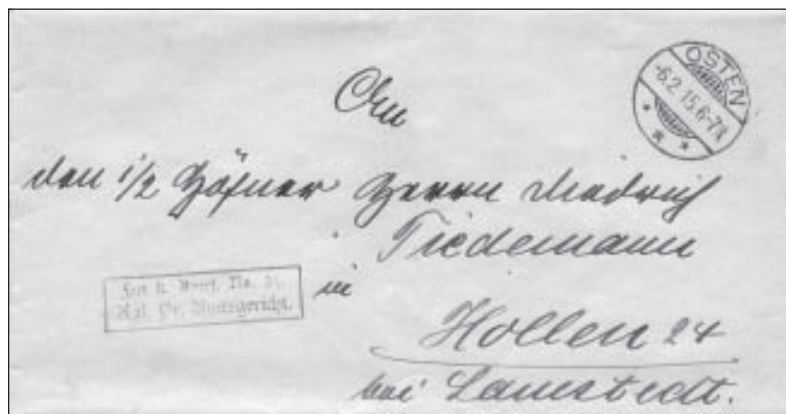 An
OSTEN
-6.2.15.6-7N.
den 1/2 Höfner Herrn Diedrich
Tiedemann
in
Frei lt. Avers. No. 21.
Kgl. Pr. Amtsgericht.
Hollen 24
bei Lamstedt.